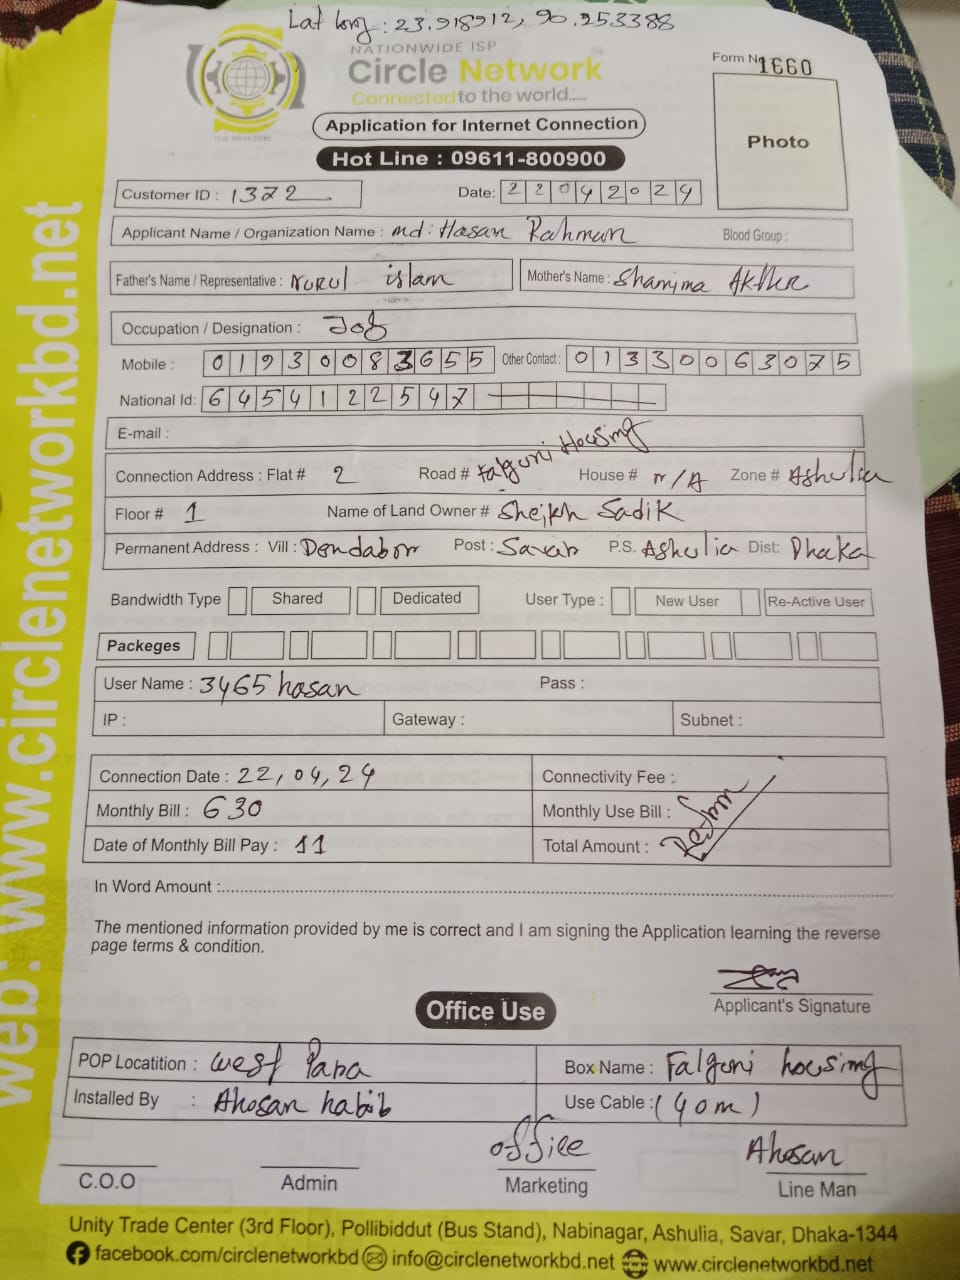 Lat long : 23.918912, 90.253388
NATIONWIDE ISP
Circle Network
Connected to the world.....
Form N 1660
Application for Internet Connection
Photo
Hot Line : 09611-800900
Customer ID : 1372
Date: 22042024
Applicant Name / Organization Name : md: Hasan Rahman Blood Group :
Father's Name / Representative : Nurul islam Mother's Name : Shamima Akther
Occupation / Designation : Job
Mobile : 01930083655 Other Contact : 01330063075
National Id: 6454122547
E-mail :
Connection Address : Flat # 2 Road # Falguni Housing House # N/A Zone # Ashulia
Floor # 1 Name of Land Owner # Sheikh Sadik
Permanent Address : Vill : Dendabor Post : Savar P.S. Ashulia Dist: Dhaka
Bandwidth Type Shared Dedicated User Type : New User Re-Active User
Packeges
User Name : 3465hasan Pass :
IP : Gateway : Subnet :
Connection Date : 22,04,24 Connectivity Fee :
Monthly Bill : 630 Monthly Use Bill :
Date of Monthly Bill Pay : 11 Total Amount :
In Word Amount :
The mentioned information provided by me is correct and I am signing the Application learning the reverse
page terms & condition.
Applicant's Signature
Office Use
POP Locatition : west Para Box Name : Falguni housing
Installed By : Ahosan habib Use Cable : (40m)
office Ahosan
C.O.O Admin Marketing Line Man
Unity Trade Center (3rd Floor), Pollibiddut (Bus Stand), Nabinagar, Ashulia, Savar, Dhaka-1344
facebook.com/circlenetworkbd info@circlenetworkbd.net www.circlenetworkbd.net
web: www.circlenetworkbd.net